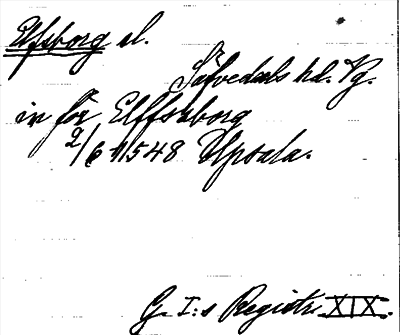 Ulfsborg sl.
Säfvedals hd. Vg.
in för Elffzborg
2/6 1548 Upsala.
G. I:s Registr. XIX.